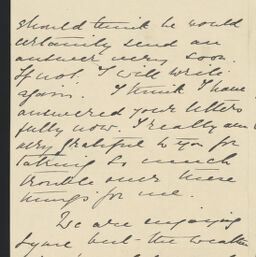 should think he would
certainly send an
answer very soon.
If not. I will write
again. I think I have
answered your letters
fully now. I really am
very grateful to you for
taking so much
trouble over these
things for me.
We are enjoying
but the weather